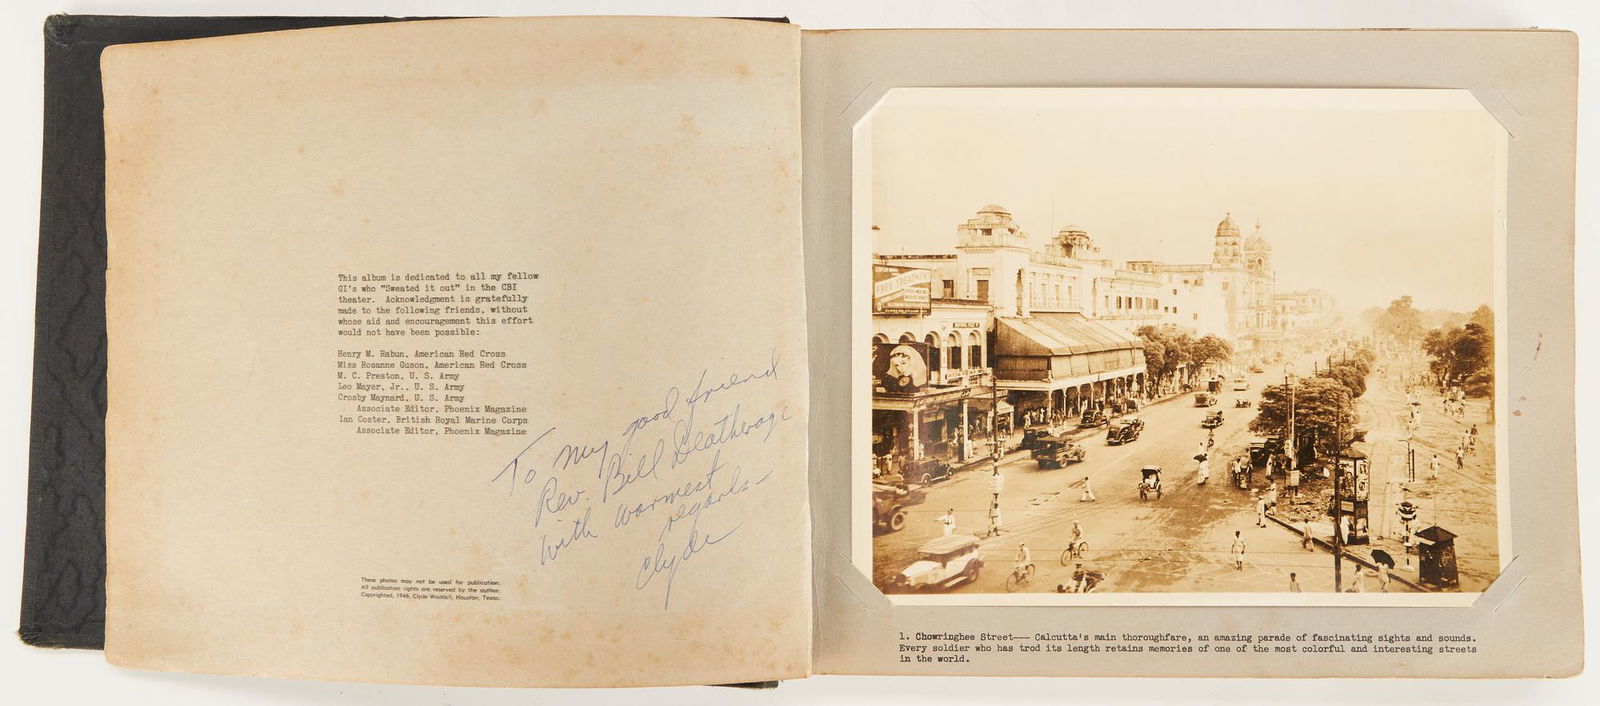 This album is dedicated to all my fellow
GI's who "Sweated it out" in the CBI
theater. Acknowledgment is gratefully
made to the following friends, without
whose aid and encouragement this effort
would not have been possible:
Henry M. Rabun, American Red Cross
Miss Rosanne Guson, American Red Cross
M. C. Preston, U. S. Army
Leo Mayer, Jr., U. S. Army
Crosby Maynard, U. S. Army
Associate Editor, Phoenix Magazine
Ian Coster, British Royal Marine Corps
Associate Editor, Phoenix Magazine
To my good friend
Rev. Bill
with warmest
regards—
Clyde
These photos may not be used for publication.
All publication rights are reserved by the author.
Copyrighted, 1946, Clyde Waddell, Houston, Texas.
1. Chowringhee Street—— Calcutta's main thoroughfare, an amazing parade of fascinating sights and sounds.
Every soldier who has trod its length retains memories of one of the most colorful and interesting streets
in the world.